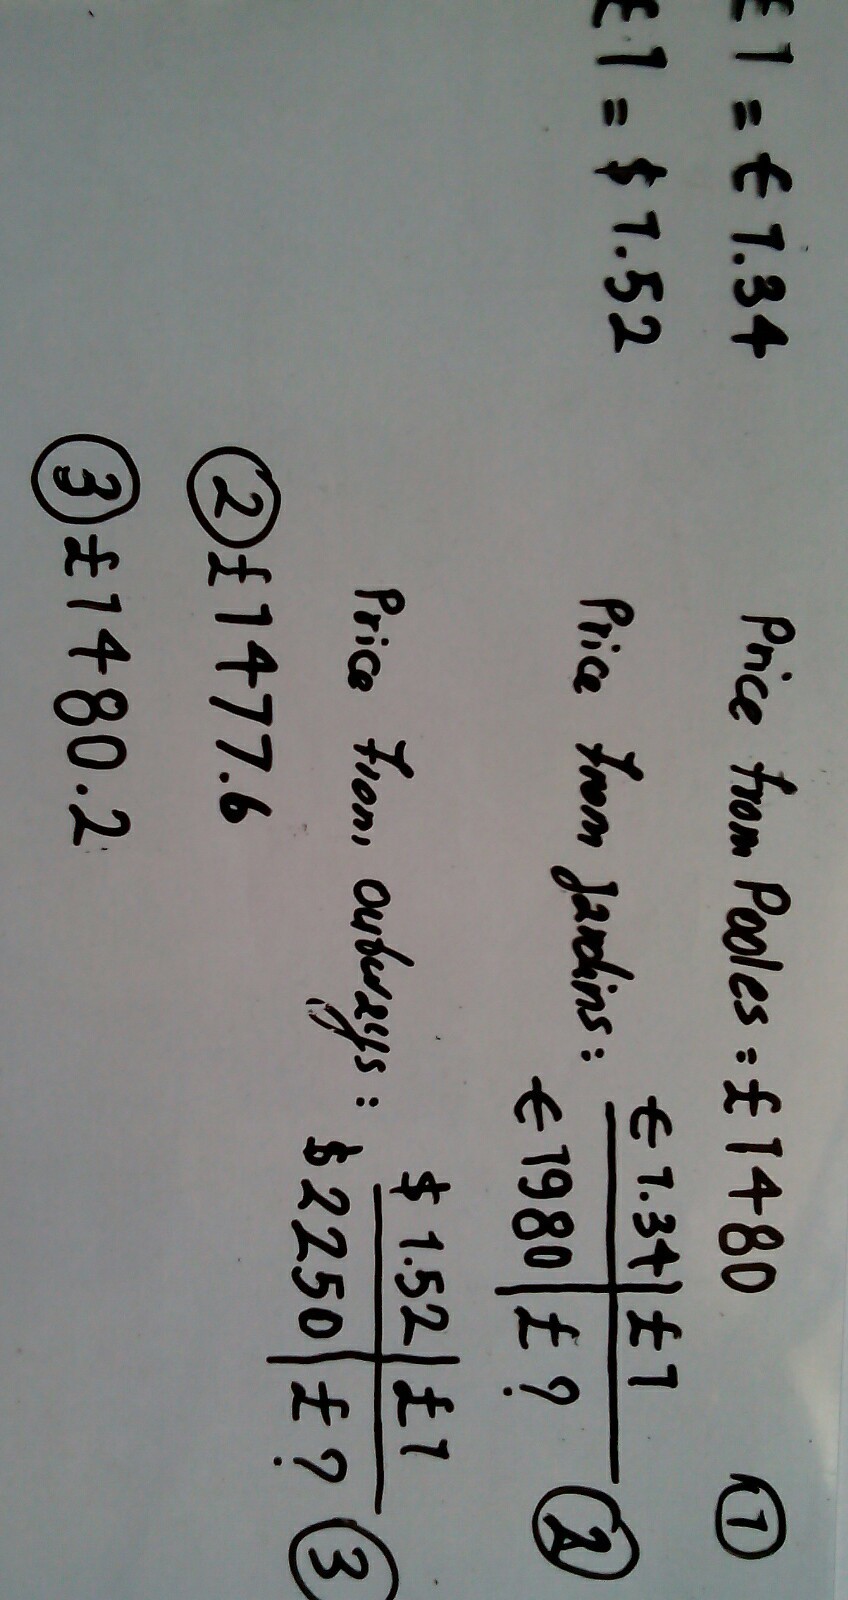 £1 = € 1.34
£1 = $ 1.52
Price from Pooles = £1480 ①
Price from Jardins : € 1.34 | £1
€ 1980 | £ ? ②
Price from : $ 1.52 | £1
$ 2250 | £ ? ③
② £1477.6
③ £1480.2